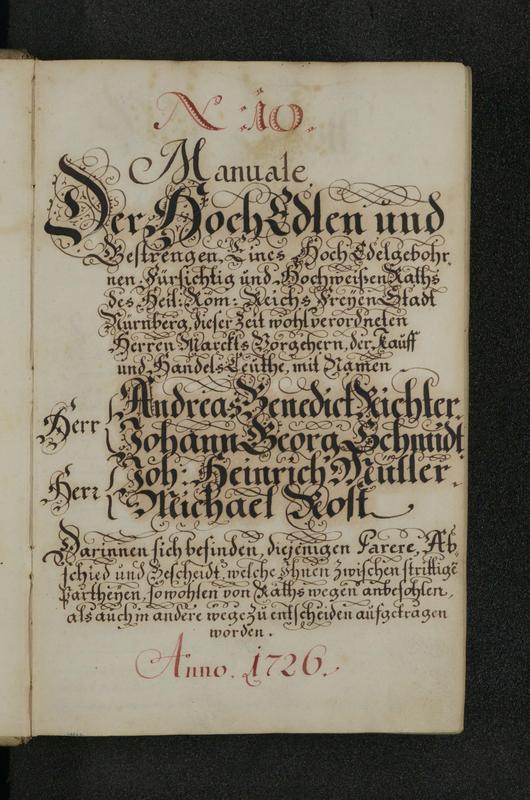 N: 10.
Manuale
Der HochEdlen und
Gestrengen, Eines HochEdelgebohr
nen Fürsichtig und Hochweißen Raths
des Heil: Röm: Reichs Freyen Stadt
Nürnberg, dieser Zeit wohlverordneten
Herren Marckts Vorgehern, der Kauff
und Handels Leuthe, mit Namen
Herr { Andreas Benedict Richter.
Johann Georg Schmidt
Herr { Joh: Heinrich Müller.
Michael Rost.
Darinnen sich befinden, diejenigen Parere, Ab
schied und Bescheidt, welche Ihnen zwischen strittigē
Partheyen, sowohlen von Raths wegen anbefohlen,
als auch in andere wege zu entscheiden aufgetragen
worden.
Anno. 1726.